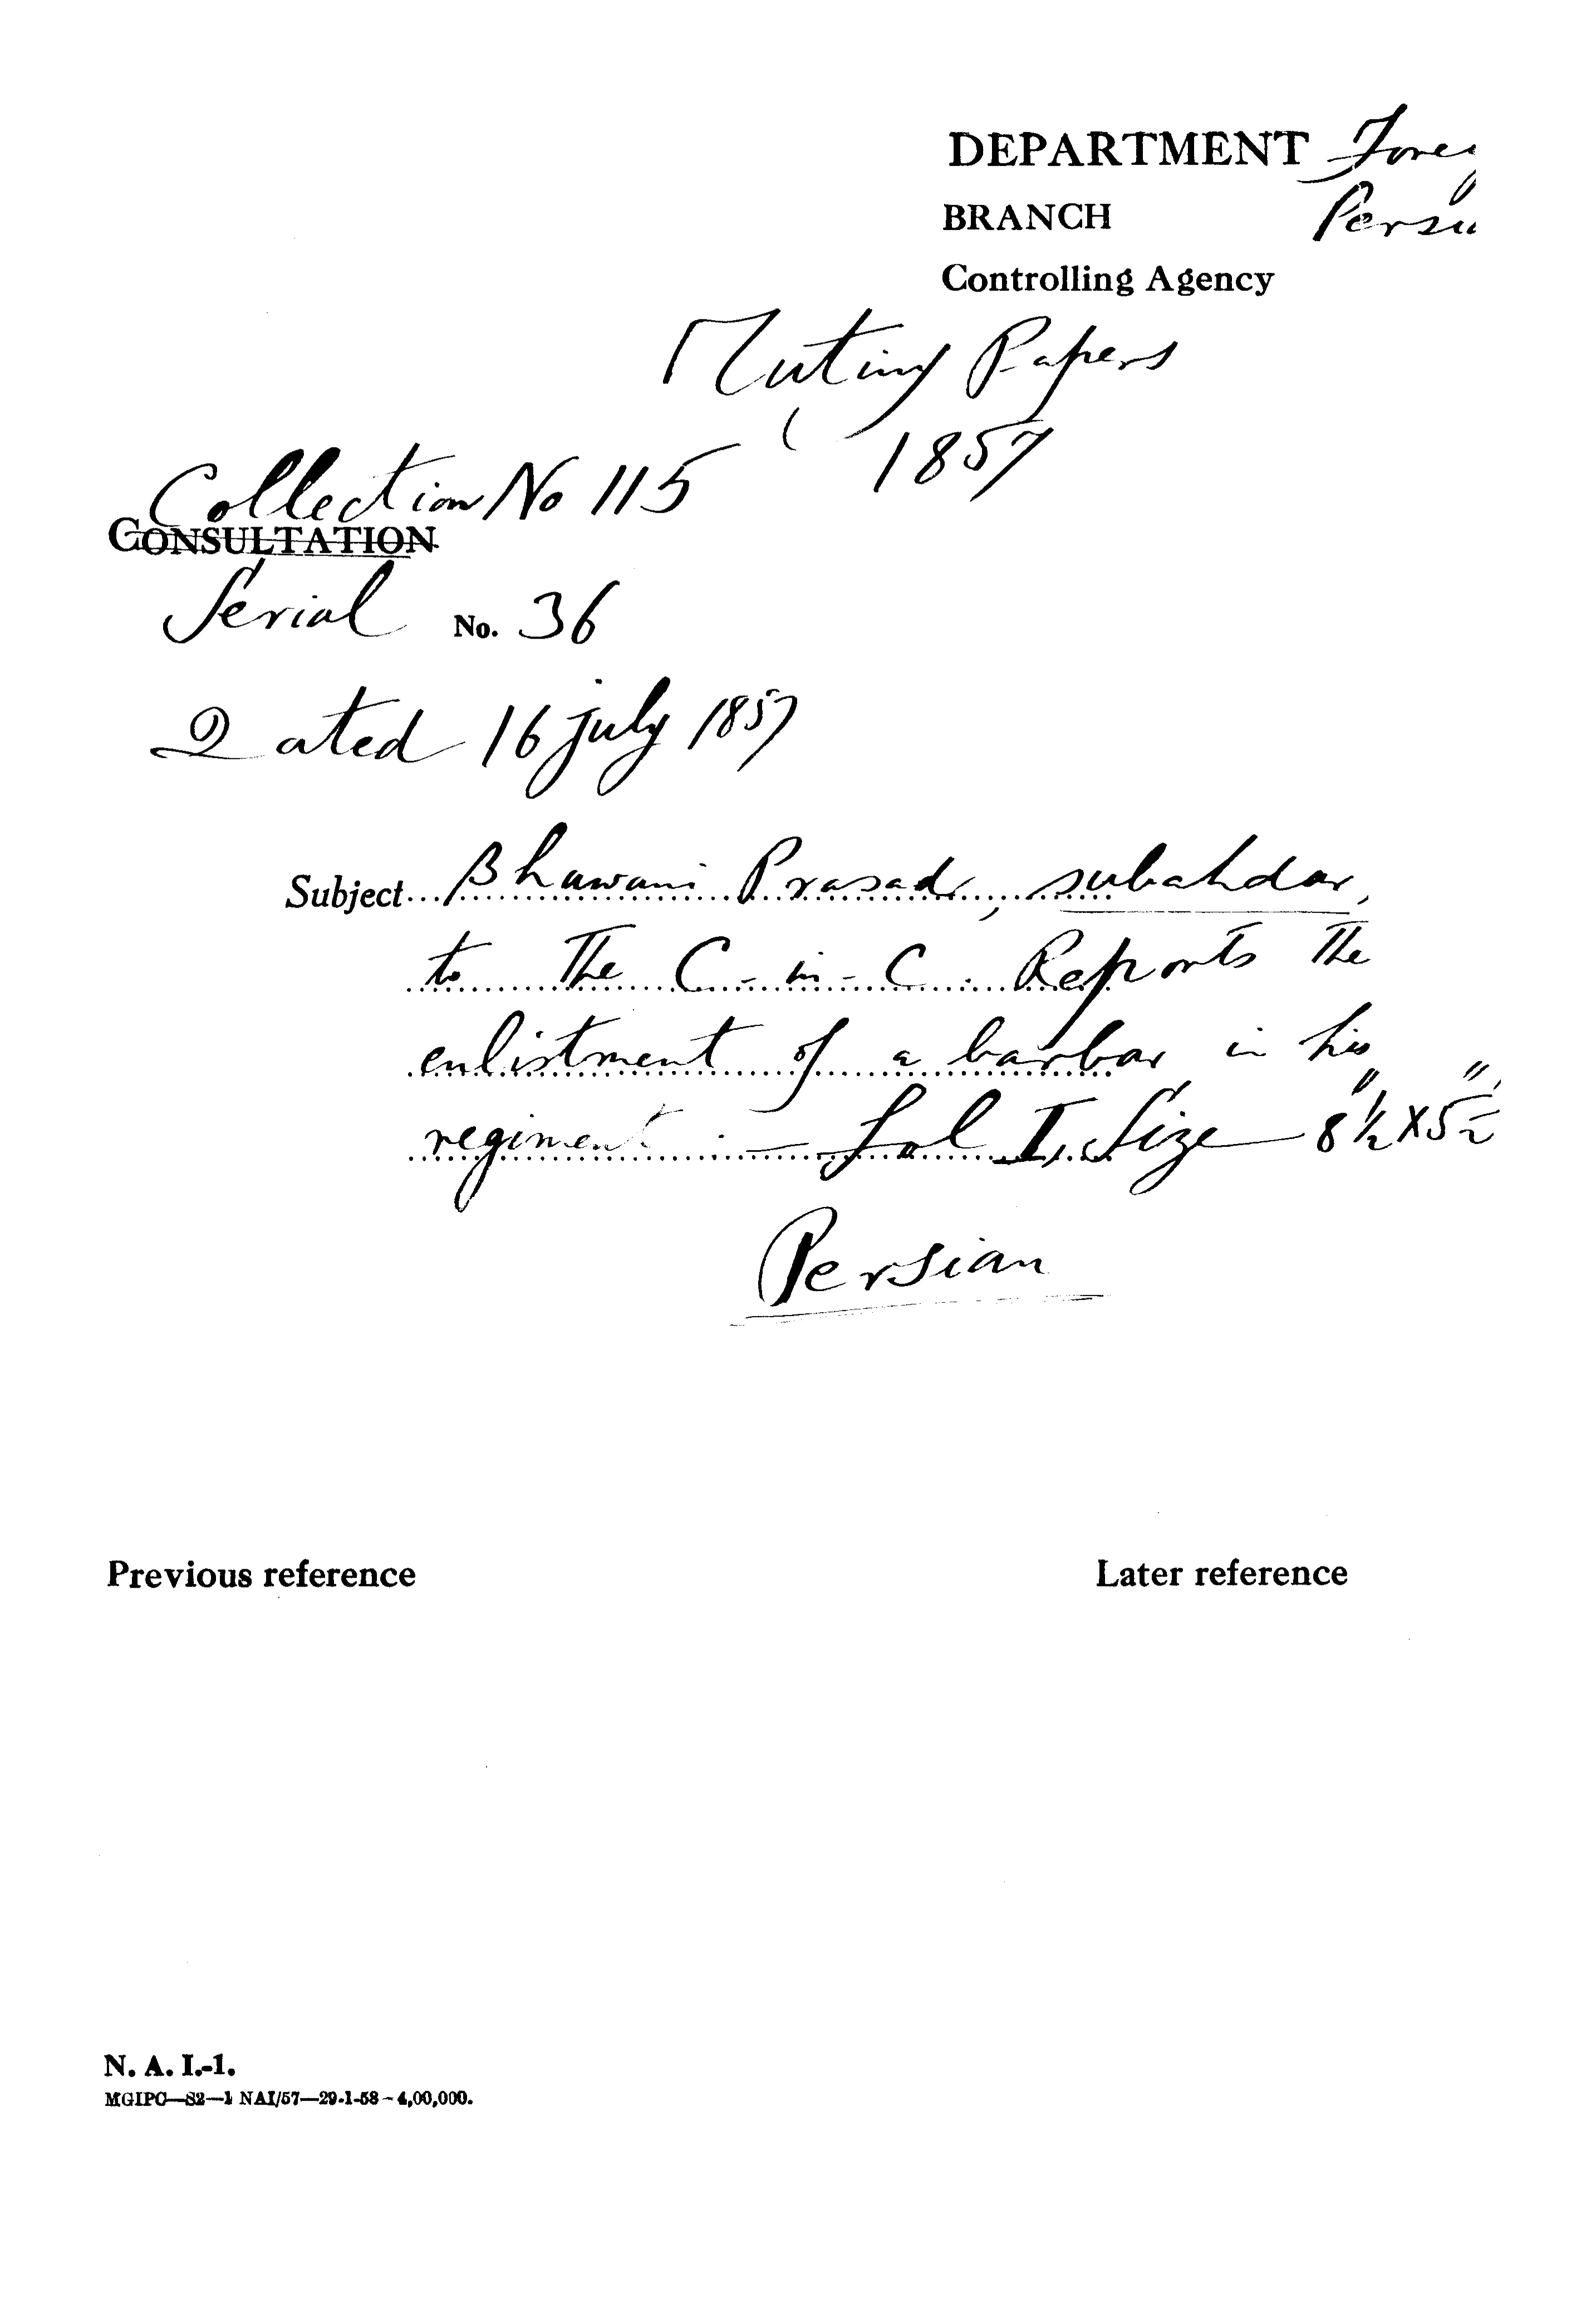 DEPARTMENT Foreig
BRANCH Persia
Controlling Agency
Mutiny Papers
1857
Collection No 115
CONSULTATION
Serial No. 36
Dated 16 july 1857
Subject Bhawani Prasad, subahdar,
to The C-in-C. Reports The
enlistment of a barbar in his
regiment. — Fol I, Size — 8½" X 5½"
Persian
Previous reference Later reference
N. A. I.-1.
MGIPC—S2—1 NAI/57—29-1-58—4,00,000.